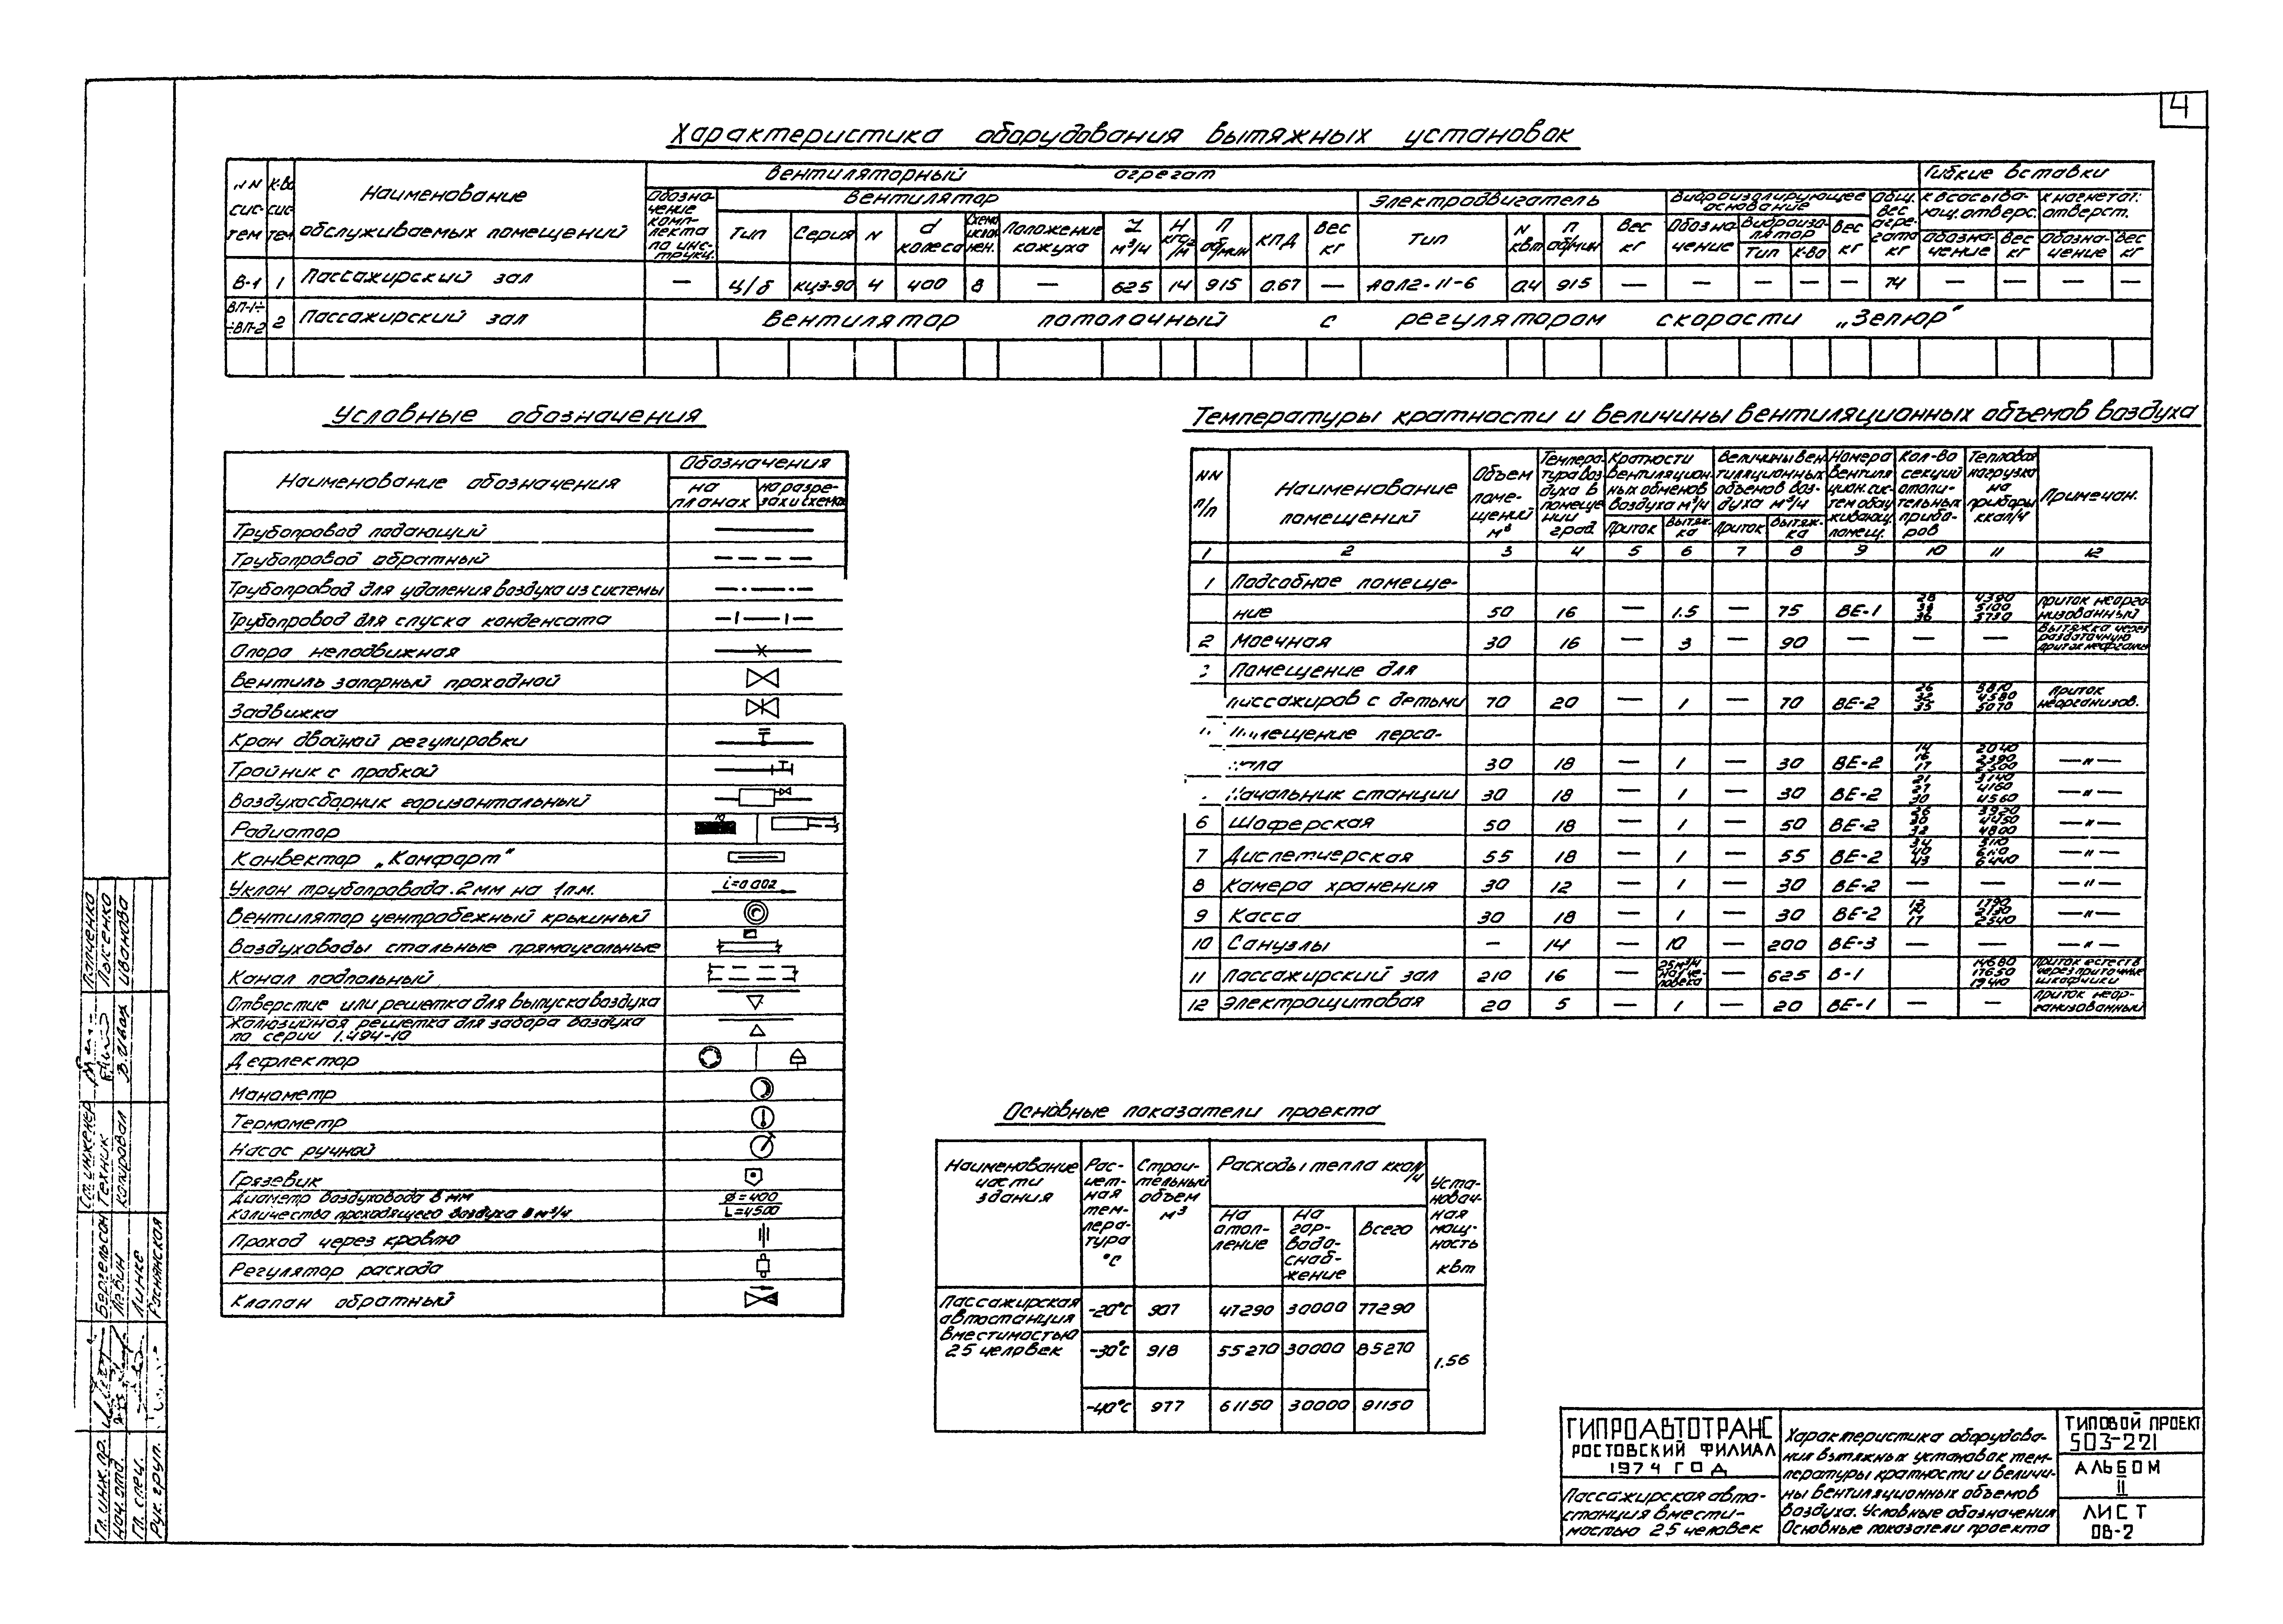 4
Характеристика оборудования вытяжных установок
NN систем
К-во систем
Наименование обслуживаемых помещений
Вентиляторный агрегат
Гибкие вставки
Обозначение комплекта по инструкц.
Вентилятор
Электродвигатель
Виброизолирующее основание
Общ. вес агрегата кг
к всасывающ. отверс.
к нагнетат. отверст.
Тип Серия N d колеса Схема исполнен. Положение кожуха L м³/ч H кгс/м² n об/мин КПД Вес кг
Тип N квт n об/мин Вес кг
Обозначение Виброизолятор Тип К-во Вес кг
Обозначение Вес кг Обозначение Вес кг
В-1 1 Пассажирский зал — Ц/б КЦ3-90 4 400 8 — 625 14 915 0.67 — АОЛ2-11-6 0.4 915 — — — — — 74 — — — —
ВП-1÷ ÷ВП-2 2 Пассажирский зал Вентилятор потолочный с регулятором скорости „Зефир"
Условные обозначения
Наименование обозначения
Обозначения
на планах
на разрезах и схемах
Трубопровод падающий
Трубопровод обратный
Трубопровод для удаления воздуха из системы
Трубопровод для спуска конденсата
Опора неподвижная
Вентиль запорный проходной
Задвижка
Кран двойной регулировки
Тройник с пробкой
Воздухосборник горизонтальный
Радиатор
Конвектор „Комфорт"
Уклон трубопровода. 2мм на 1п.м. i=0.002
Вентилятор центробежный крышный
Воздуховоды стальные прямоугольные
Канал подпольный
Отверстие или решетка для выпуска воздуха
Жалюзийная решетка для забора воздуха
по серии 1.494-10
Дефлектор
Манометр
Термометр
Насос ручной
Грязевик
Диаметр воздуховода в мм ø=400
Количество проходящего воздуха в м³/ч L=4500
Проход через кровлю
Регулятор расхода
Клапан обратный
Температуры кратности и величины вентиляционных объемов воздуха
NN п/п
Наименование помещений
Объем помещений м³
Температура воздуха в помещении град.
Кратности вентиляционных обменов воздуха м³/ч
Приток Вытяжка
Величины вентиляционных объемов воздуха м³/ч
Приток Вытяжка
Номера вентиляцион. систем обслуживающ. помещ.
Кол-во секций отопительных приборов
Тепловая нагрузка на приборы ккал/ч
Примечан.
1 2 3 4 5 6 7 8 9 10 11 12
1 Подсобное помеще-
ние 50 16 — 1.5 — 75 ВЕ-1 36 4390 5100 5730 приток неорганизованный
2 Моечная 30 16 — 3 — 90 — — — Вытяжка через раздаточную
Помещение для
пассажиров с детьми 70 20 — 1 — 70 ВЕ-2 26 32 35 3810 4580 5070 приток неорганизов.
Помещение персо-
нала 30 18 — 1 — 30 ВЕ-2 14 16 17 2040 2390 2500 —"—
Начальник станции 30 18 — 1 — 30 ВЕ-2 21 27 30 3140 4160 4560 —"—
6 Шоферская 50 18 — 1 — 50 ВЕ-2 30 32 4450 4800 —"—
7 Диспетчерская 55 18 — 1 — 55 ВЕ-2 34 40 43 —"—
8 Камера хранения 30 12 — 1 — 30 ВЕ-2 — — —"—
9 Касса 30 18 — 1 — 30 ВЕ-2 17 1790 2130 2540 —"—
10 Санузлы — 14 — 10 — 200 ВЕ-3 — — —"—
11 Пассажирский зал 210 16 — 25м³/ч на 1 человека — 625 В-1 14680 17650 19410 приток естеств через приточные шкафчики
12 Электрощитовая 20 5 — 1 — 20 ВЕ-1 — — приток неорганизованный
Основные показатели проекта
Наименование части здания
Расчетная температура °С
Строительный объем м³
Расходы тепла ккал/ч
На отопление
На горводоснабжение
Всего
Установочная мощность квт
Пассажирская автостанция вместимостью 25 человек
-20°С 907 47290 30000 77290
-30°С 918 55270 30000 85270
1.56
-40°С 977 61150 30000 91150
ГИПРОАВТОТРАНС
РОСТОВСКИЙ ФИЛИАЛ
1974 ГОД
Пассажирская авто-
станция вмести-
мостью 25 человек
Характеристика оборудова-
ния вытяжных установок тем-
пературы кратности и величи-
ны вентиляционных объемов
воздуха. Условные обозначения
Основные показатели проекта
ТИПОВОЙ ПРОЕКТ
503-221
АЛЬБОМ
II
ЛИСТ
ОВ-2
Гл. инж. пр.
Нач. отд.
Гл. спец.
Рук. груп.
Бергельсон
Левин
Линке
Гл. инженер
Техник
Копировал
Папченко
Лысенко
Иванова